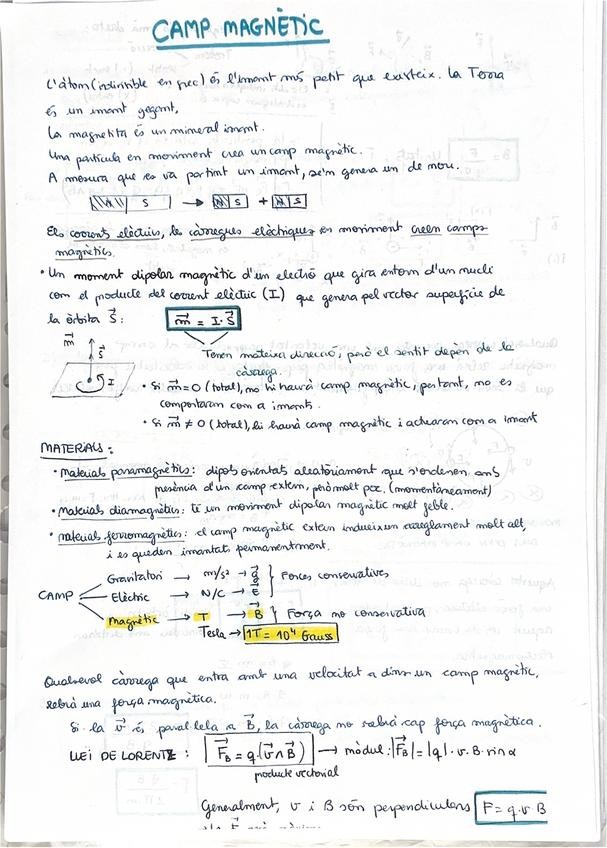 CAMP MAGNÈTIC
L'àtom (indivisible en grec) és l'imant més petit que existeix. La Terra
és un imant gegant.
La magnetita és un mineral imant.
Una partícula en moviment crea un camp magnètic.
A mesura que es va partint un imant, se'n genera un de nou.
N S → N S + N S
Els corrents elèctrics, les càrregues elèctriques en moviment creen camps
magnètics.
• Un moment dipolar magnètic d'un electró que gira entorn d'un nucli
com el producte del corrent elèctric (I) que genera pel vector superfície de
la òrbita S⃗: m⃗ = I · S⃗
Tenen mateixa direcció, però el sentit depèn de la
càrrega.
m⃗ S⃗ I
• Si m⃗ = 0 (total), no hi haurà camp magnètic, pertant, no es
comportaran com a imants.
• Si m⃗ ≠ 0 (total), hi haurà camp magnètic i actuaran com a imant
MATERIALS:
• Materials paramagnètics: dipols orientats aleatòriament que s'ordenen amb
presència d'un camp extern, però molt poc. (momentàneament)
• Materials diamagnètics: té un moviment dipolar magnètic molt feble.
• Materials ferromagnètics: el camp magnètic extern indueix un arreglament molt alt,
i es queden imantats permanentment.
CAMP
Gravitatori → m/s² → g⃗
Elèctric → N/C → E⃗ } Forces conservatives
Magnètic → T → B⃗ } Força no conservativa
Tesla → 1T = 10⁴ Gauss
Qualsevol càrrega que entra amb una velocitat a dins un camp magnètic,
rebrà una força magnètica.
Si la v⃗ és paral·lela a B⃗, la càrrega no rebrà cap força magnètica.
LLEI DE LORENTZ: F⃗B = q·(v⃗ ∧ B⃗) → mòdul: |F⃗B| = |q| · v · B · sin α
producte vectorial
Generalment, v i B són perpendiculars F = q·v·B